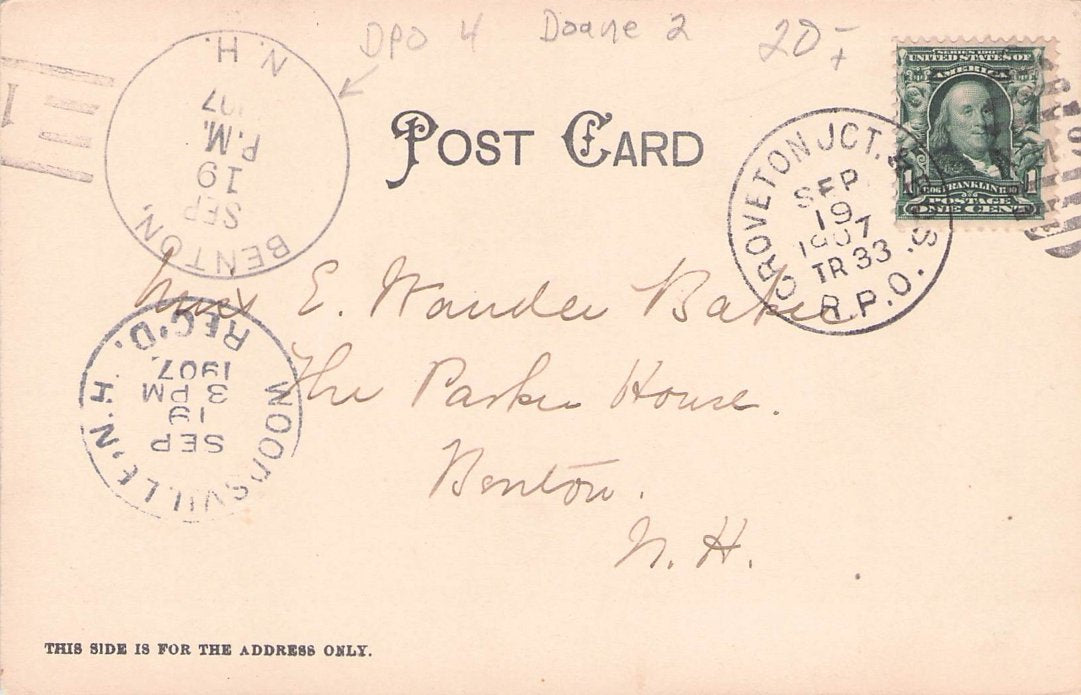 DPO 4 Doane 2 20-
N. H.
1907
P.M.
19
SEP
BENTON,
1
POST CARD
GROVETON JCT. & BOS.
SEP
19
1907
TR 33
R.P.O.
SERIES 1902
UNITED STATES OF
AMERICA
1 FRANKLIN 1
POSTAGE
ONE CENT
E. Wander Baker
The Parker House.
Benton.
N. H.
REC'D.
1907.
3 PM
19
SEP
WOODSVILLE, N.H.
THIS SIDE IS FOR THE ADDRESS ONLY.